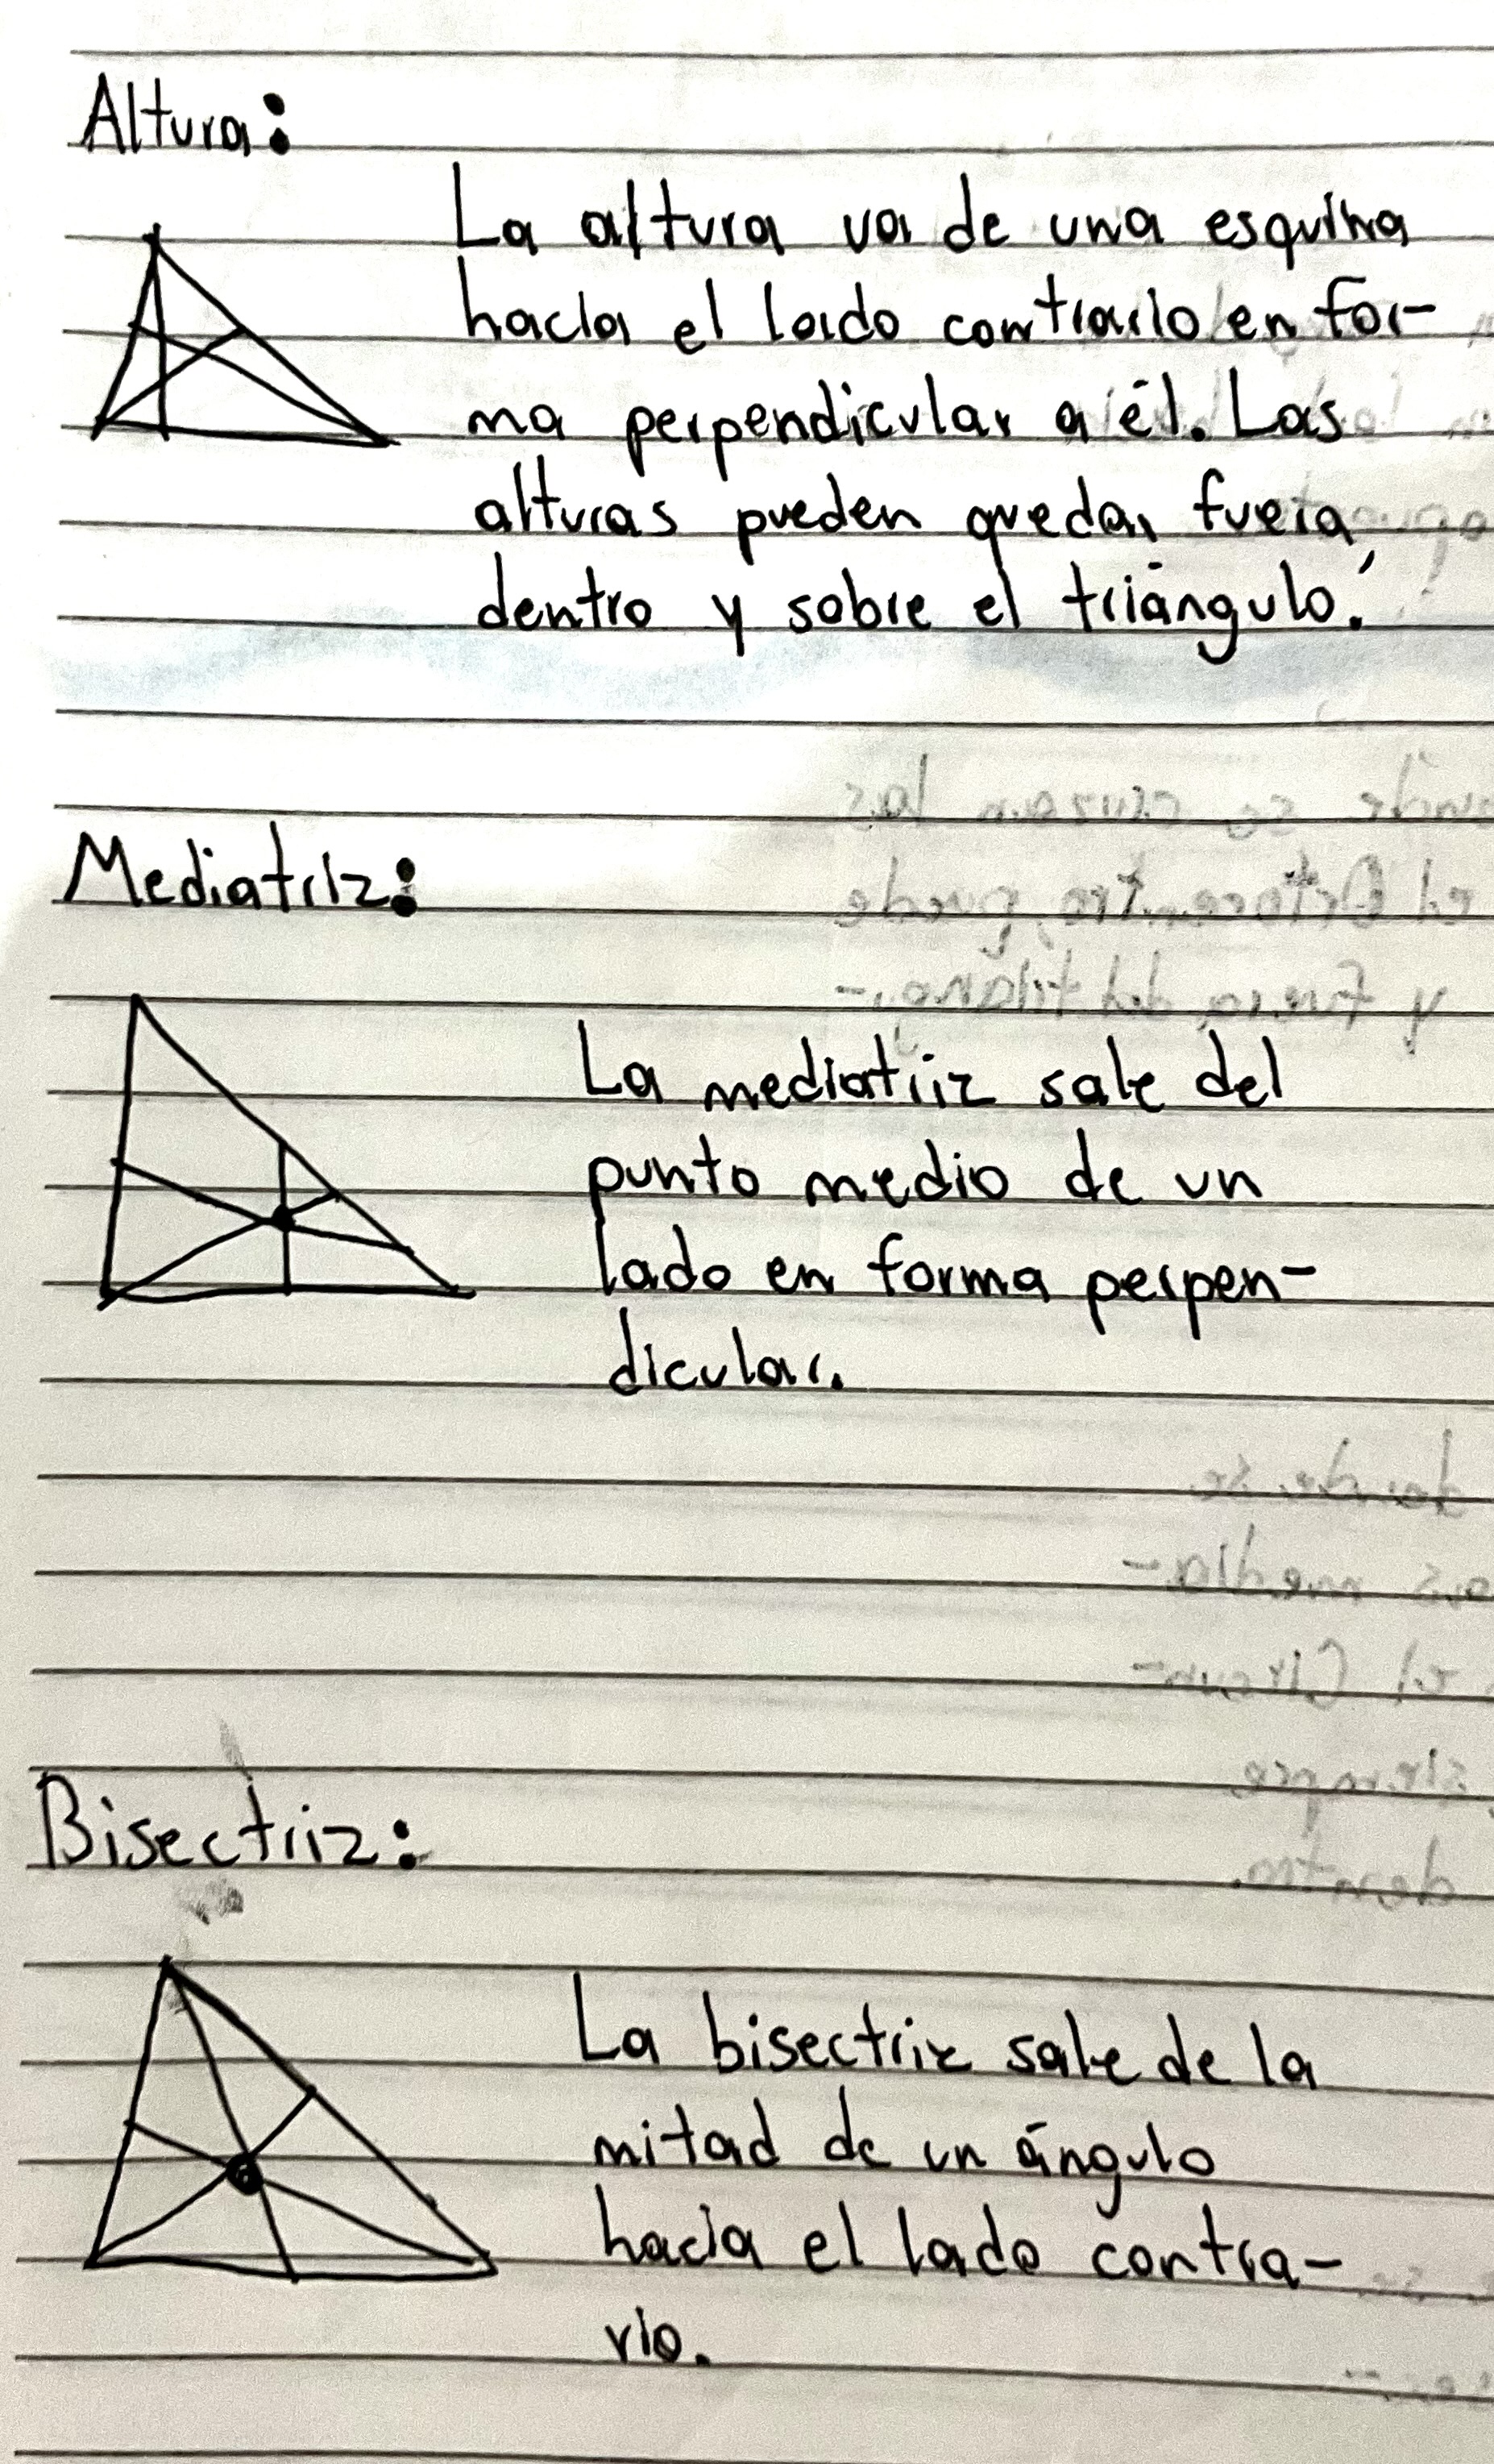 Altura:
La altura va de una esquina
hacia el lado contrario en for-
ma perpendicular a él. Las
alturas pueden quedar fuera,
dentro y sobre el triángulo.
Mediatriz:
La mediatriz sale del
punto medio de un
lado en forma perpen-
dicular.
Bisectriz:
La bisectriz sale de la
mitad de un ángulo
hacia el lado contra-
rio.